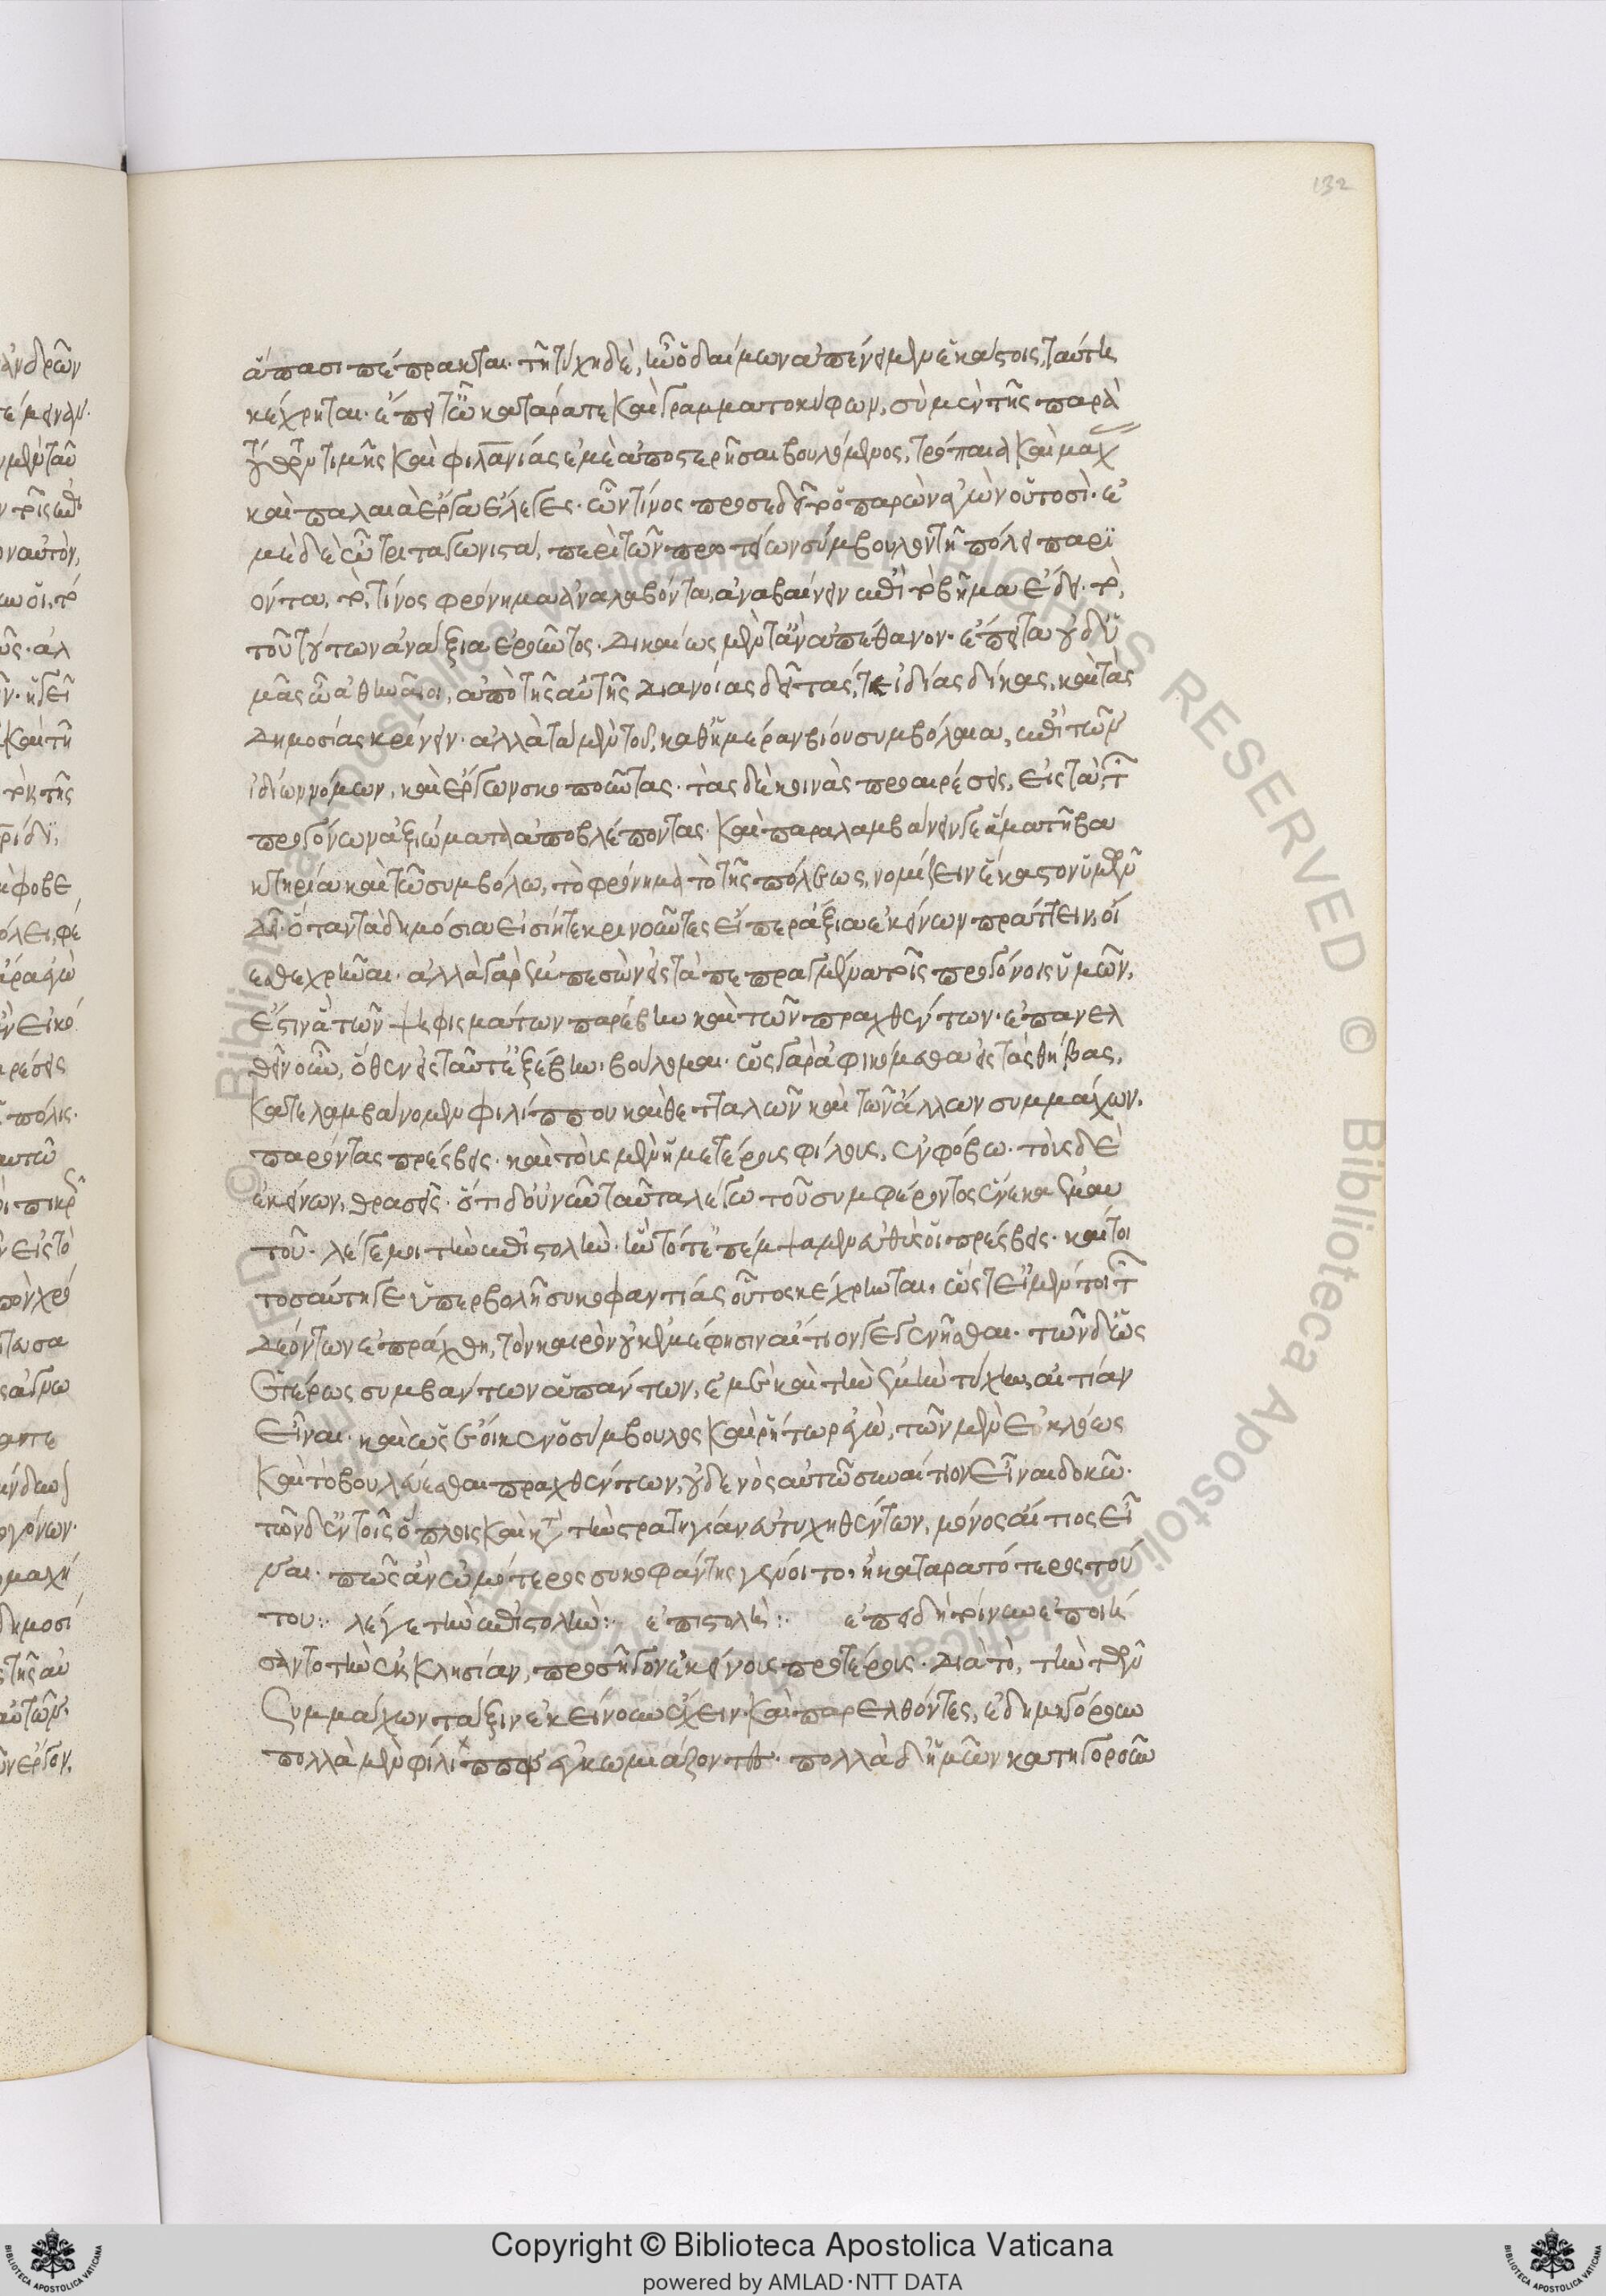 132
ἅπασι πέπρακται· τῆ τύχη δὲ, ἣν ὁ δαίμων ἀπένειμεν ἑκάστοις, ταύτη
κέχρηται· ἔπειτ' ὦ κατάρατε καὶ γραμματοκύφων, σὺ μὲν τῆς παρὰ
τουτωνὶ τιμῆς καὶ φιλανίας ἐμὲ ἀποστερῆσαι βουλόμενος, τρόπαια καὶ μάχ
καὶ παλαιὰ ἔργα ἔλεγες· ὧν τίνος προσεδεῖτο ὁ παρὼν ἀγὼν οὑτοσί· ἐ
μὲ δὲ ὦ τριταγωνιστὰ, περὶ τῶν πρωτείων σύμβουλον τῆ πόλει παρι
όντα, τὸ τίνος φρόνημα ἀναλαβόντα, ἀναβαίνειν ἐπὶ τὸ βῆμα ἔδει· τὸ
τοῦ τούτων ἀνάξια ἐροῦντος· δικαίως μέν τ' ἂν ἀπέθανον· ἔπειτα οὐδ' ὑ
μᾶς ὦ ἀθηναῖοι, ἀπὸ τῆς αὐτῆς διανοίας δεῖ τάς τε ἰδίας δίκας, καὶ τὰς
δημοσίας κρίνειν· ἀλλὰ τὰ μὲν τοῦ καθ' ἡμέραν βίου συμβόλαια, ἐπὶ τῶν
ἰδίων νόμων, καὶ ἔργων σκοποῦντας· τὰς δὲ κοινὰς προαιρέσεις, εἰς τὰ τ
προγόνων ἀξιώματα ἀποβλέποντας· καὶ παραλαμβάνειν γε ἅμα τῆ βα
κτηρία καὶ τῶ συμβόλω, τὸ φρόνημα τὸ τῆς πόλεως, νομίζειν ἕκαστον ὑμῶν
δεῖ· ὅταν τὰ δημόσια εἰσίητε κρινοῦντες εἴπερ ἄξια ἐκείνων πράττειν, οἴ
εσθε χρῆναι· ἀλλὰ γὰρ ἐμπεσὼν εἰς τὰ πεπραγμένα τοῖς προγόνοις ὑμῶν,
ἔστιν ἃ τῶν ψηφισμάτων παρέβην καὶ τῶν πραχθέντων· ἐπανελ
θεῖν οὖν, ὅθεν εἰς ταῦτ' ἐξέβην, βούλομαι· ὡς γὰρ ἀφικόμεθα εἰς τὰς θήβας,
κατελαμβάνομεν φιλίππου καὶ θετταλῶν καὶ τῶν ἄλλων συμμάχων,
παρόντας πρέσβεις· καὶ τοὺς μὲν ἡμετέρους φίλους, ἐν φόβω· τοὺς δὲ
ἐκείνων, θρασεῖς· ὅτι δ' οὐ νῦν ταῦτα λέγω τοῦ συμφέροντος ἕνεκα ἐμαυ
τοῦ· λέγε μοι τὴν ἐπιστολὴν· ἣν τότ' ἐπέμψαμεν εὐθὺς οἱ πρέσβεις· καίτοι
τοσαύτη γε ὑπερβολῆ συκοφαντίας οὗτος κέχρηται, ὥστ' εἰ μέν τι τ
δεόντων ἐπράχθη, τὸν καιρὸν οὐκ ἐμέ φησιν αἴτιον γεγενῆσθαι· τῶν δ' ὡς
ἑτέρως συμβάντων ἁπάντων, ἐμὲ καὶ τὴν ἐμὴν τύχην, αἰτίαν
εἶναι· καὶ ὡς ἔοικεν ὁ σύμβουλος καὶ ῥήτωρ ἐγὼ, τῶν μὲν ἐκ λόγως
καὶ τὸ βουλεύεσθαι πραχθέντων, οὐδενὸς αὐτῶ συναίτιον εἶναι δοκῶ·
τῶν δ' ἐν τοῖς ὅπλοις καὶ κατὰ τὴν στρατηγίαν ἀτυχηθέντων, μόνος αἴτιος εἶ
ναι· πῶς ἂν ὠμότερος συκοφάντης γένοιτο, ἢ καταρατότερος τού
του:· λέγε τὴν ἐπιστολὴν:· ἐπιστολὴ:· ἐπειδὴ τοίνυν ἐποιή
σαντο τὴν ἐκκλησίαν, προσῆγον ἐκείνους προτέρους· διὰ τὸ, τὴν τῶν
συμμάχων τάξιν ἐκείνους ἔχειν· καὶ παρελθόντες, ἐδημηγόρουν
πολλὰ μὲν φίλιππον ἐγκωμιάζοντες· πολλὰ δ' ἡμῶν κατηγοροῦν
Copyright © Biblioteca Apostolica Vaticana
powered by AMLAD·NTT DATA